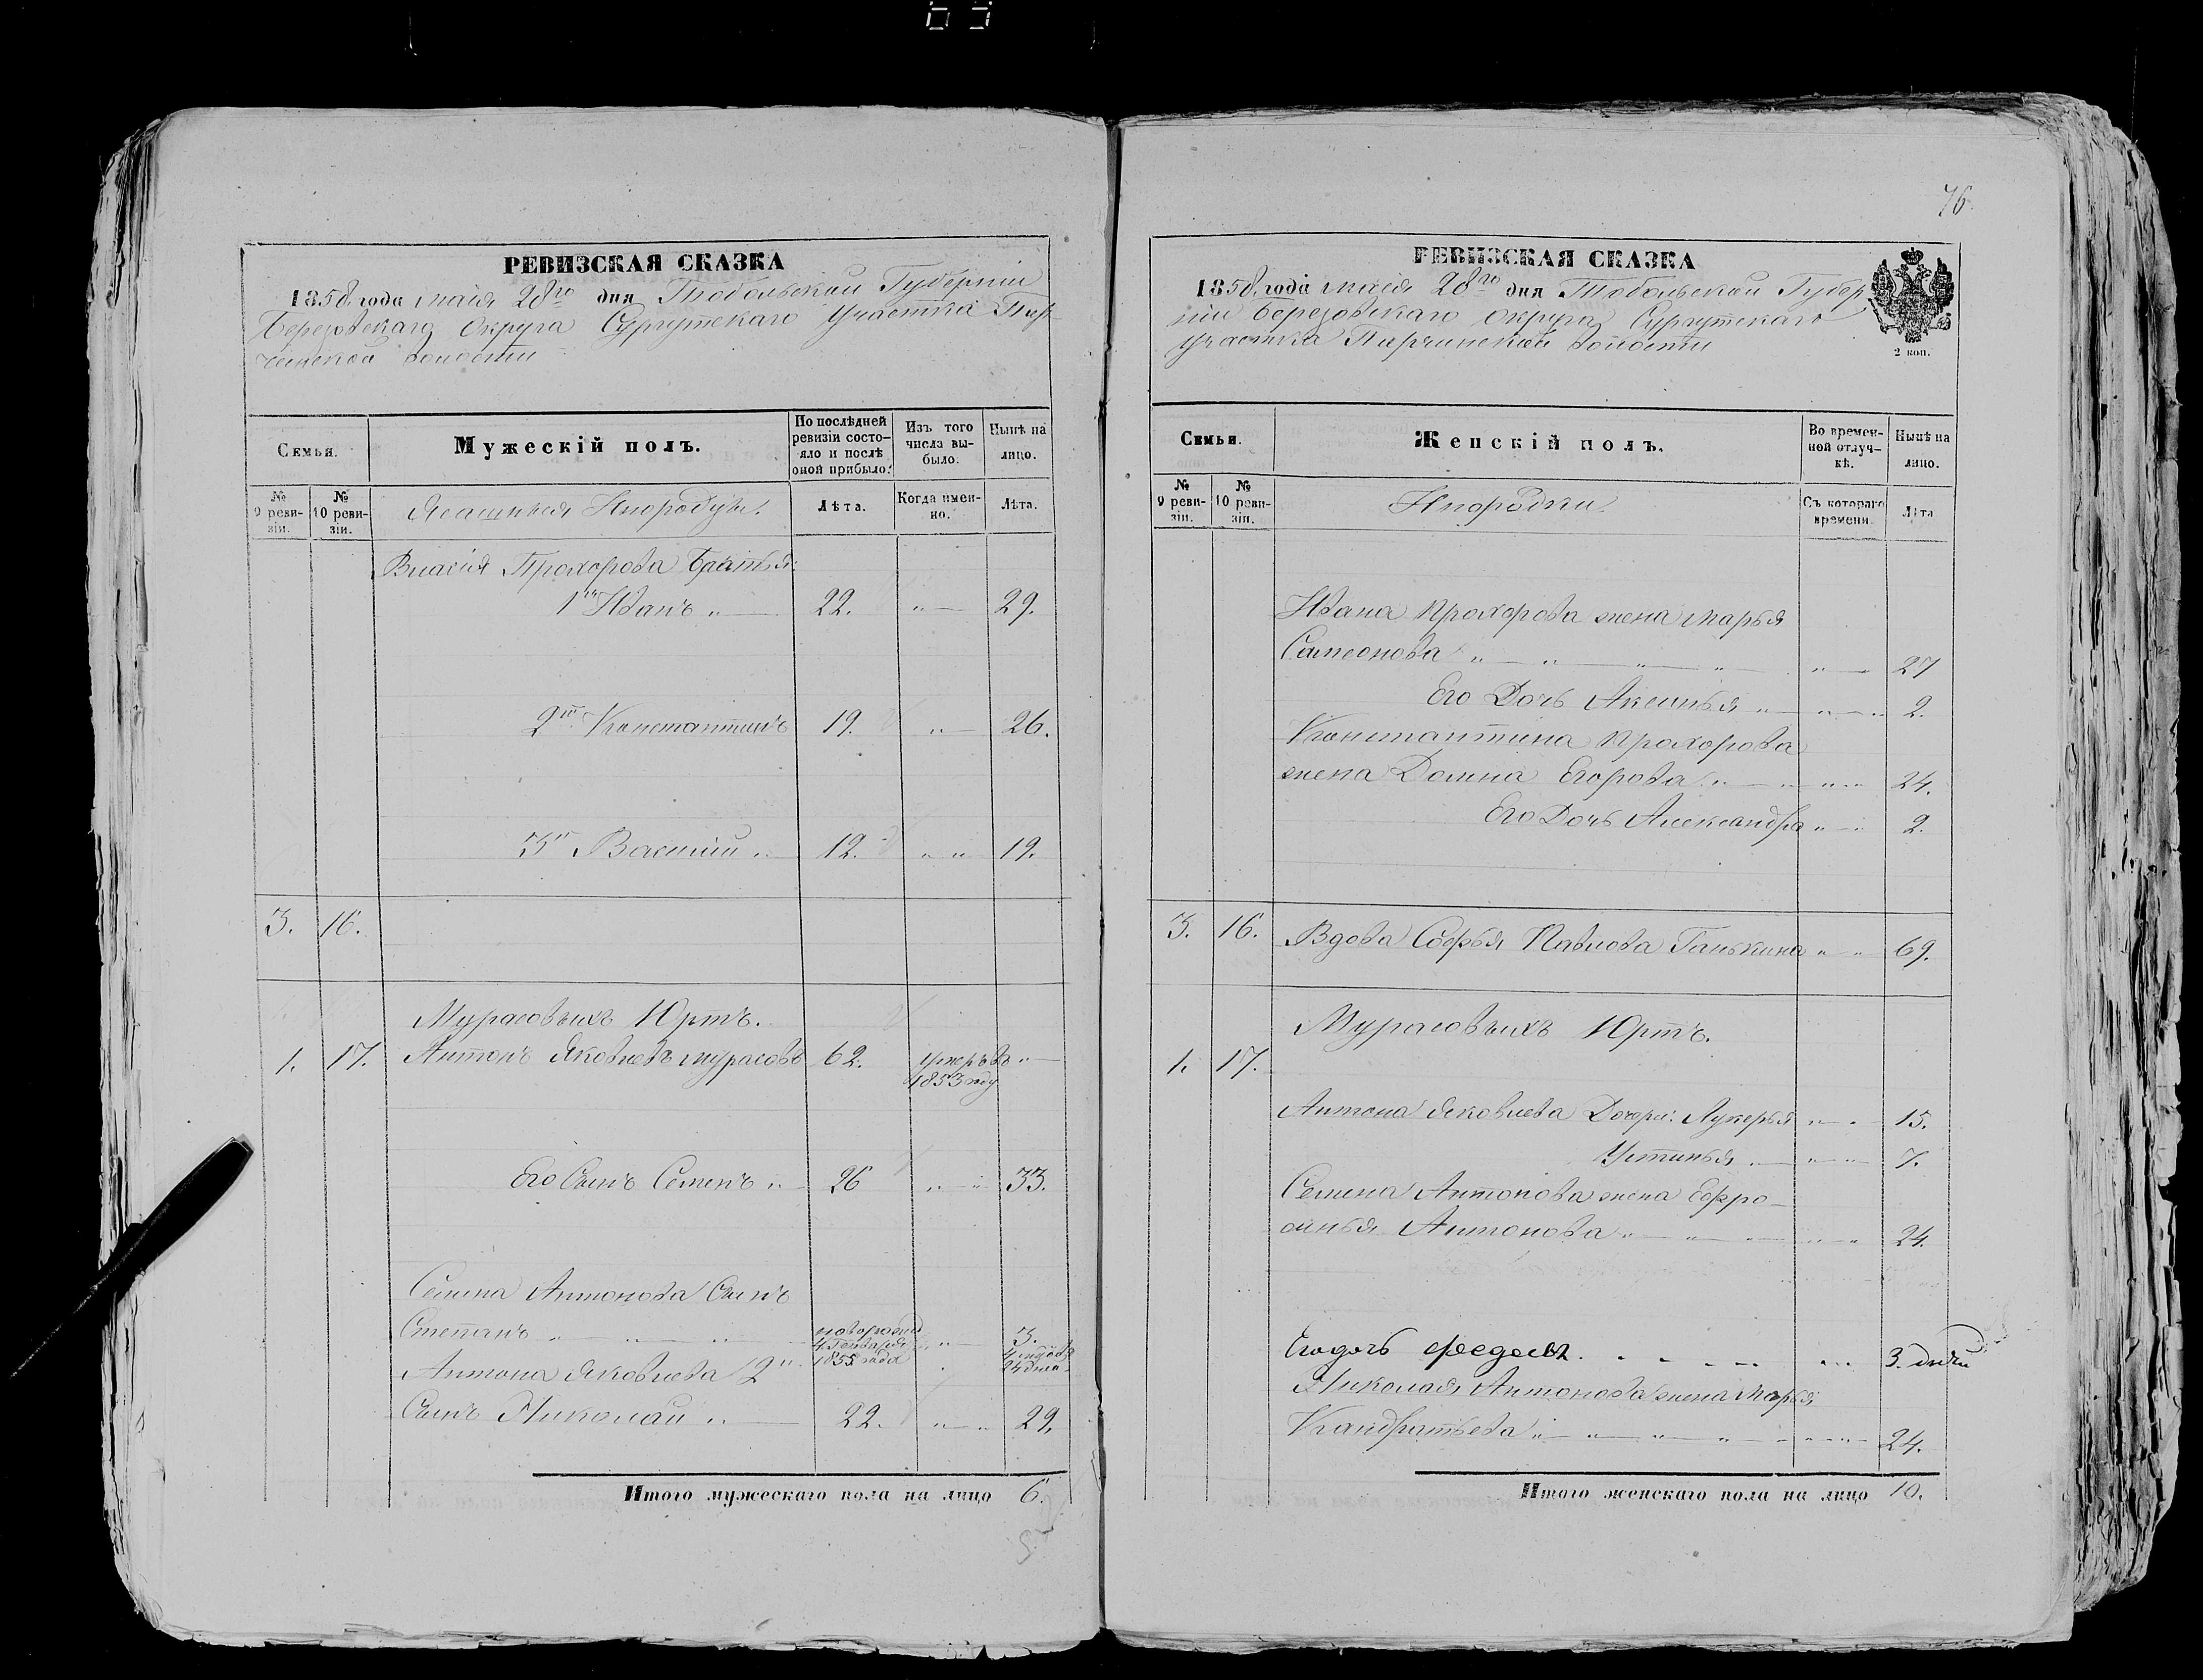 76
РЕВИЗСКАЯ СКАЗКА
1858 года маія 28го дня Тобольской Губерніи
Березовскаго Округа Сургутскаго участка Пир
чинской волости
Семьи.
Мужескій полъ.
По послѣдней ревизіи состояло и послѣ оной прибыло.
Изъ того числа выбыло.
Нынѣ на лицо.
№ 9 ревизіи.
№ 10 ревизіи.
Ясашныя Инородцы.
Лѣта.
Когда именно.
Лѣта.
Власія Прохорова братья
1й Иванъ 22. 29.
2й Константинъ 19. 26.
3й Василій 12. 19.
3. 16.
Мурасовыхъ Юртъ.
1. 17. Антонъ Яковлевъ Мурасовъ 62. умеръ въ
1853 году
Его Сынъ Семенъ 26 33.
Семена Антонова Сынъ
Степанъ новорожд 3.
4 Генваря 4 мѣсяц
1855 года 24 дня
Антона Яковлева 2й
Сынъ Николай 22. 29.
Итого мужескаго пола на лицо 6.
РЕВИЗСКАЯ СКАЗКА
1858 года маія 28го дня Тобольской Губер
ніи Березовскаго округа Сургутскаго
участка Пирчинской волости
2 коп.
Семьи.
Женскій полъ.
Во временной отлучкѣ.
Нынѣ на лицо.
№ 9 ревизіи.
№ 10 ревизіи.
Инородки.
Съ котораго времени.
Лѣта
Ивана Прохорова жена Марья
Самсонова 27
Его Дочь Аксинья 2.
Константина Прохорова
жена Домна Егорова 24.
Его Дочь Александра 2.
3. 16. Вдова Софья Павлова Ганькина 69.
Мурасовыхъ Юртъ.
1. 17.
Антона Яковлева Дочери: Лукерья 15.
Устинья 7.
Семена Антонова жена Ефро-
синья Антонова 24.
Его дочь Федосья 3. дней
Николая Антонова жена Марья
Кандратьева 24.
Итого женскаго пола на лицо 10.